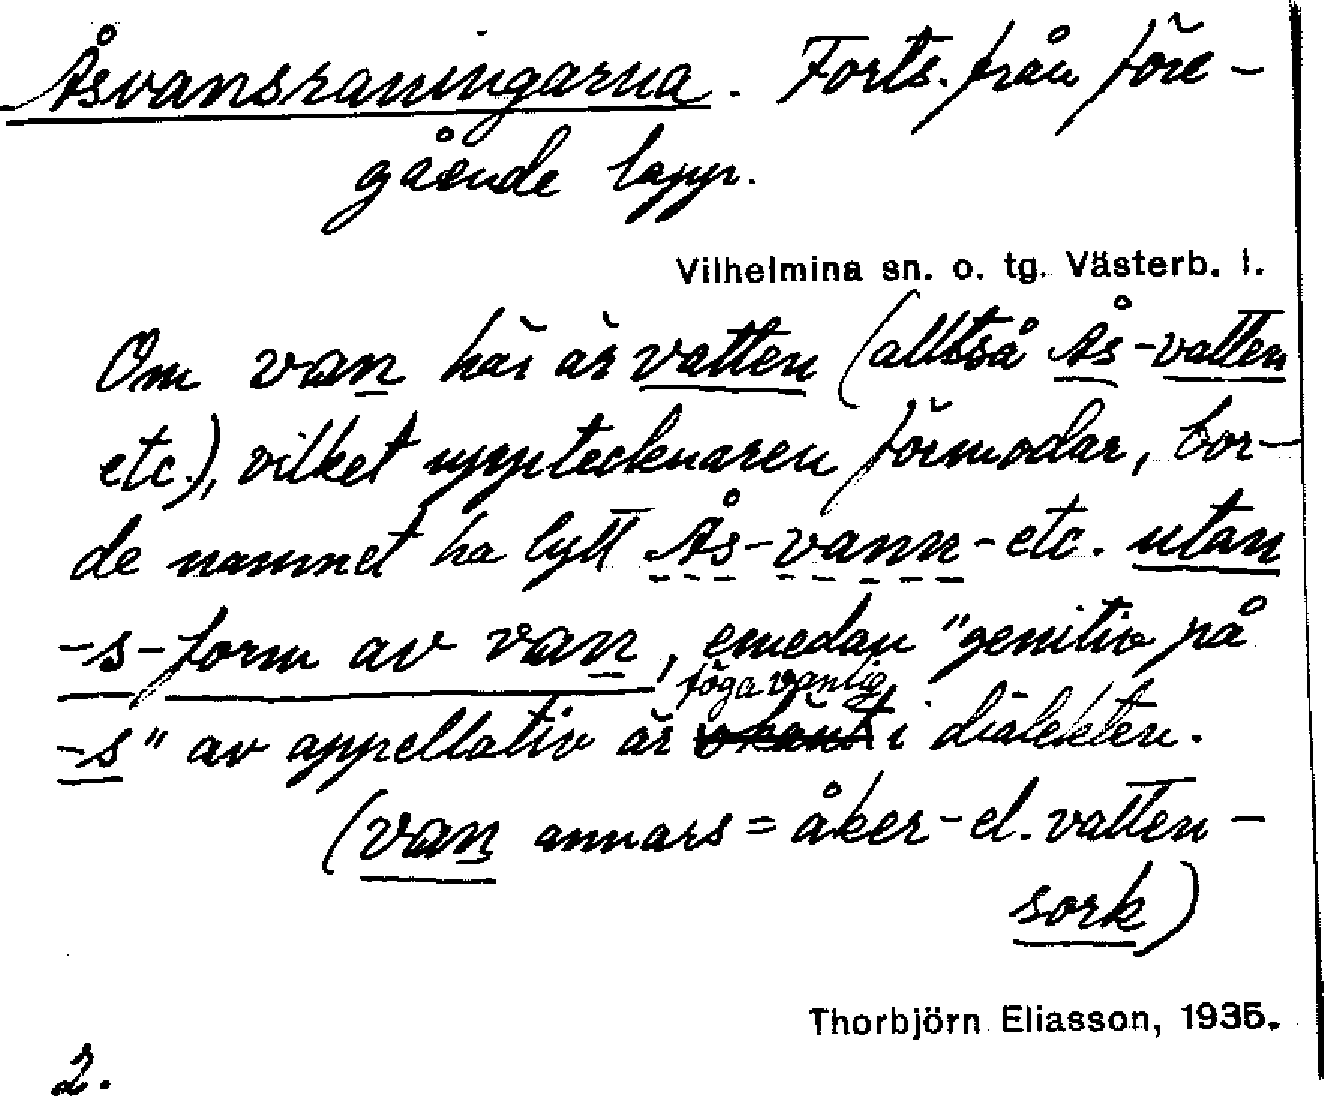 Åsvansraningarna. Forts. från före-
gående lapp.
Vilhelmina sn. o. tg. Västerb. l.
Om van här är vatten (alltså Ås-vatten
etc.), vilket upptecknaren förmodar, bor-
de namnet ha lytt Ås-vann- etc. utan
-s-form av van, emedan "genitiv på
föga vanlig
-s" av appellativ är okänt i dialekten.
(van annars = åker- el. vatten-
sork)
Thorbjörn Eliasson, 1935.
2.